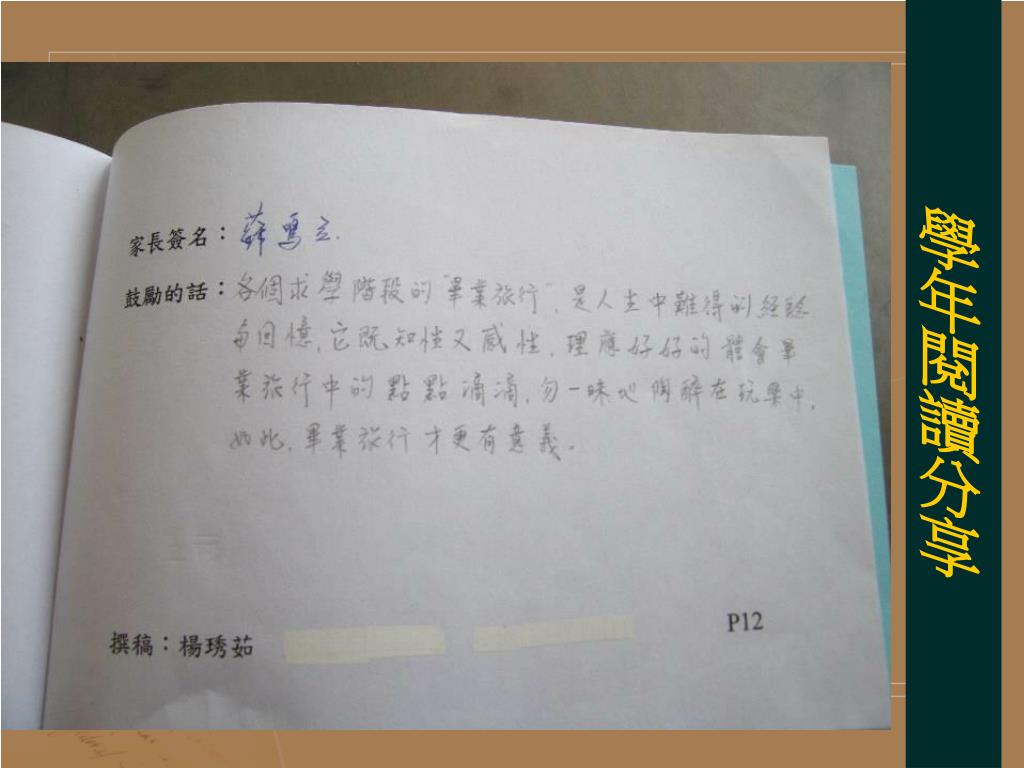 家長簽名：薛鳴立.
鼓勵的話：各個求學階段的"畢業旅行"，是人生中難得的經驗
與回憶，它既知性又感性，理應好好的體會畢
業旅行中的點點滴滴，勿一味地陶醉在玩樂中，
如此，畢業旅行才更有意義。
撰稿：楊琇茹
P12
學年閱讀分享